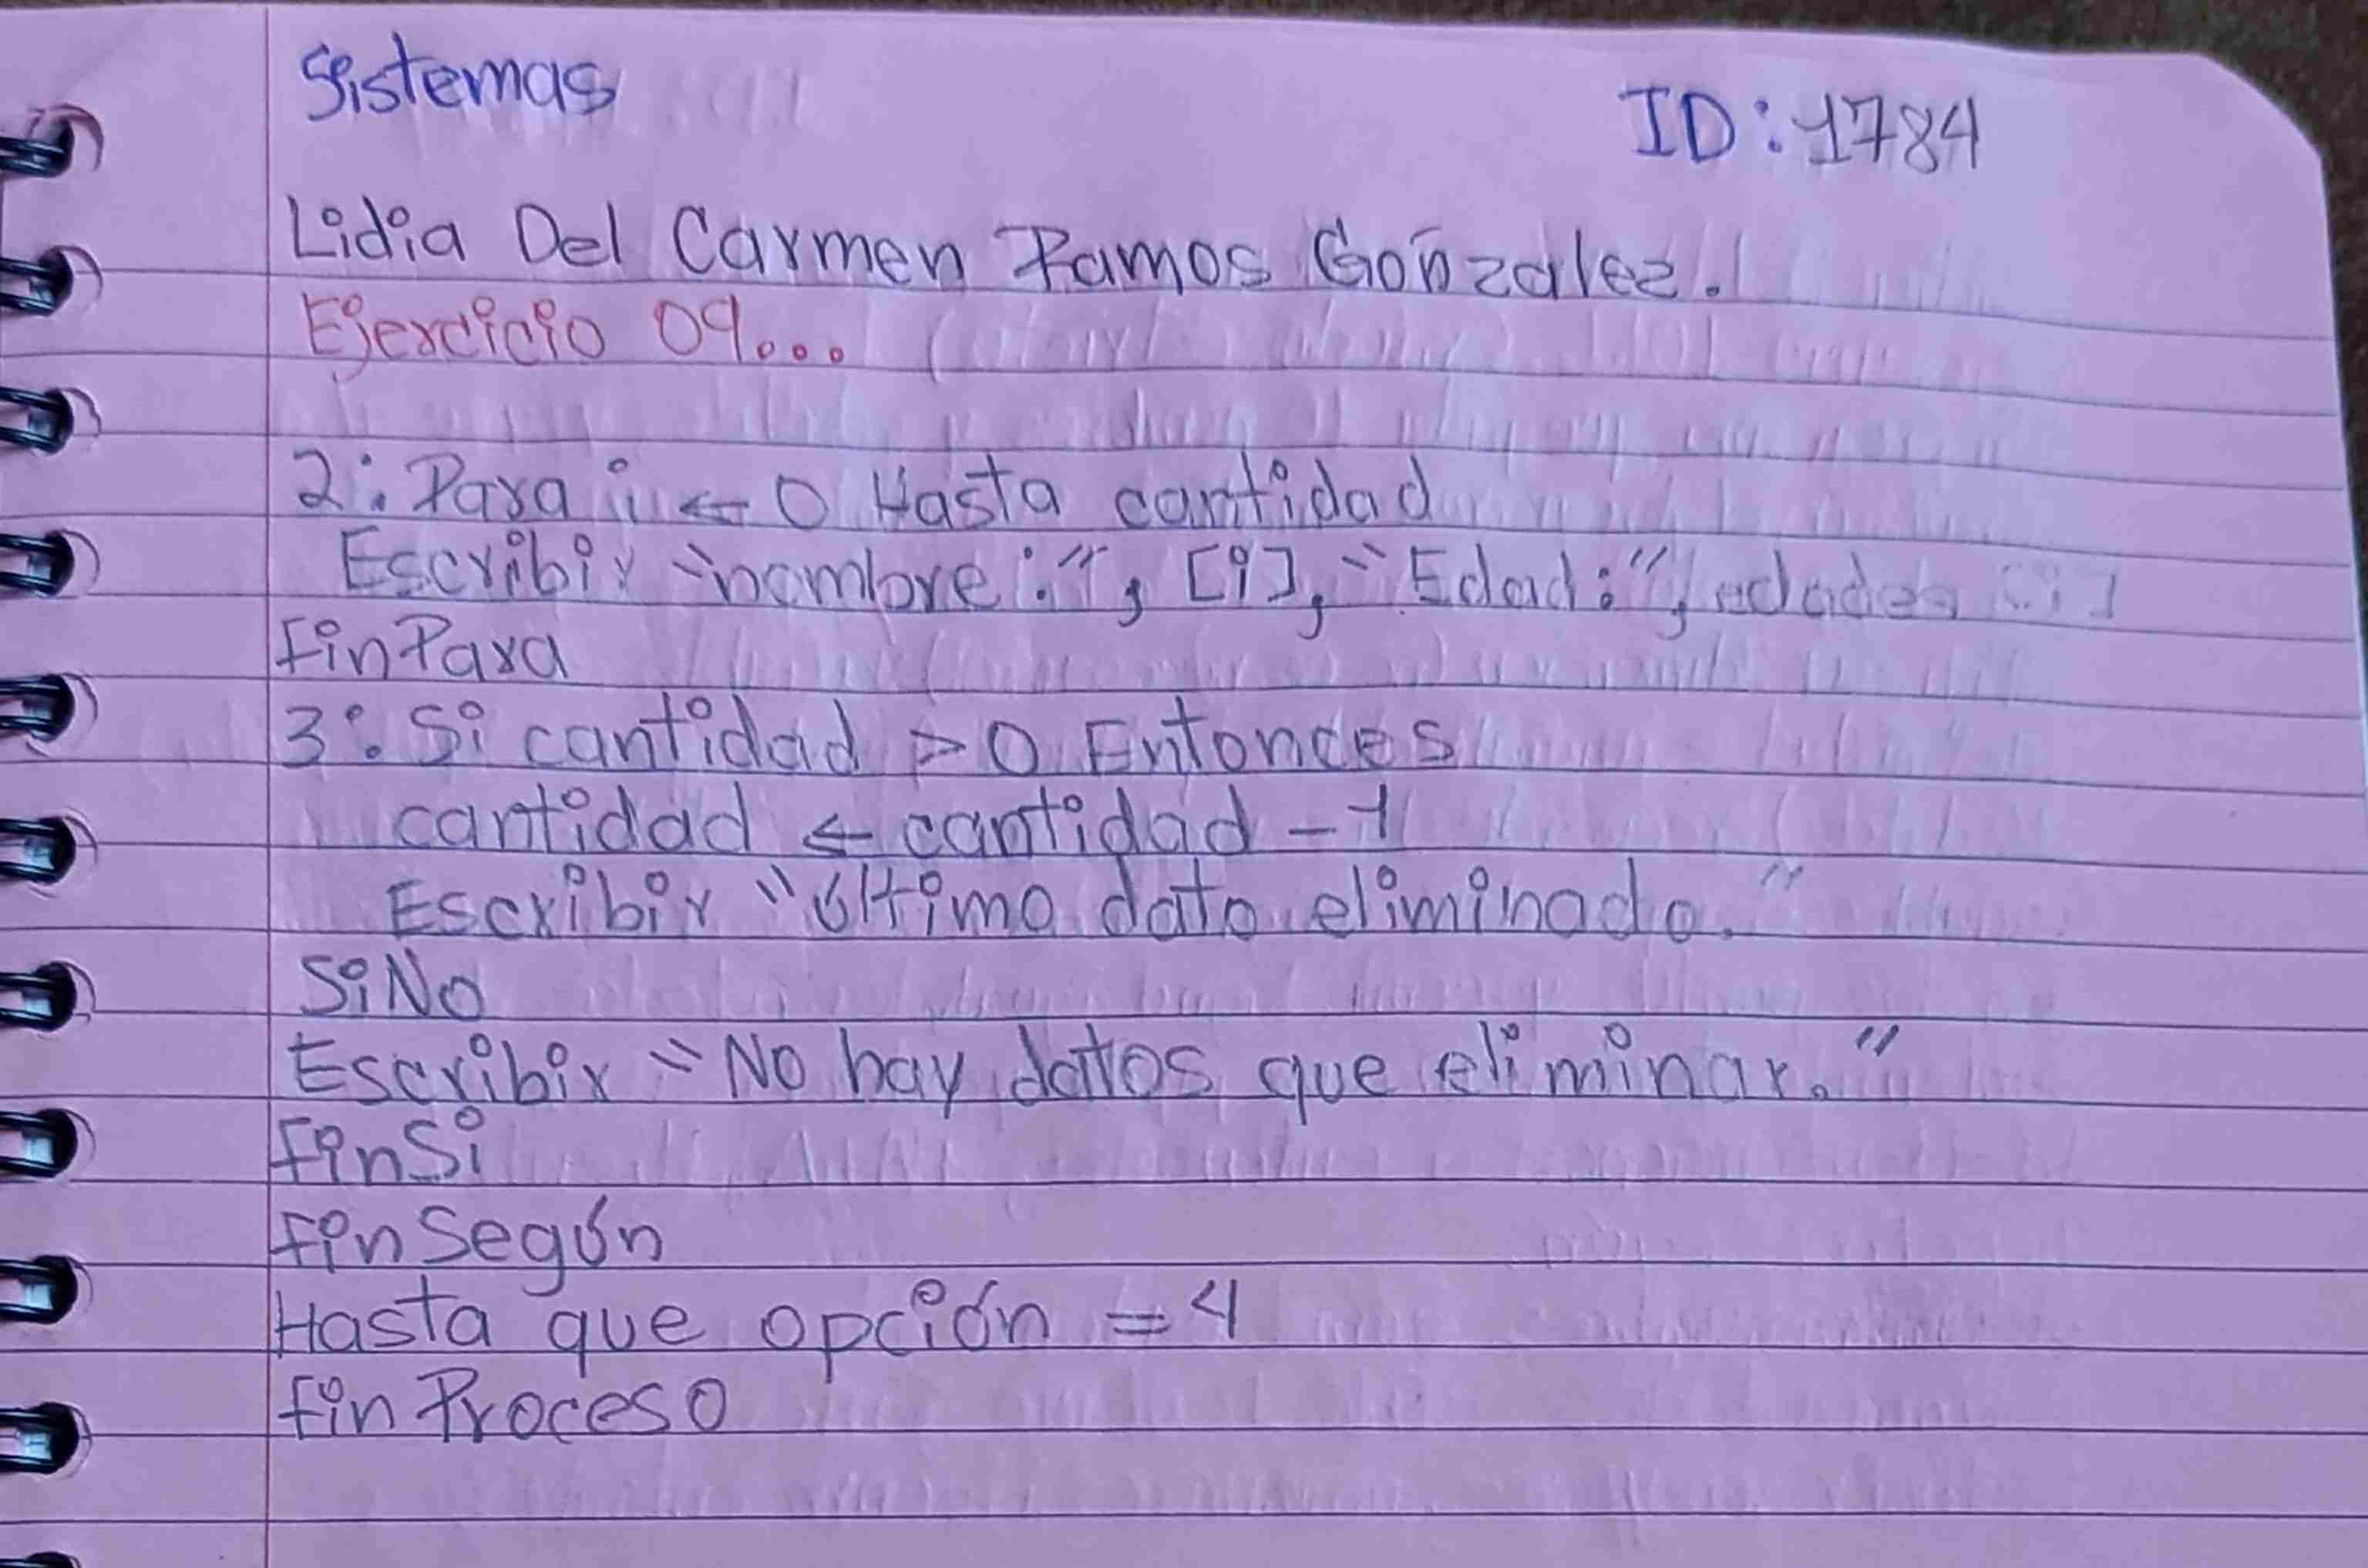 Sistemas
ID: 1784
Lidia Del Carmen Ramos Gonzalez.
Ejercicio 09...
2: Para i ← 0 Hasta cantidad
Escribir "nombre:", [i], "Edad:", edades [i]
FinPara
3: Si cantidad > 0 Entonces
cantidad ← cantidad - 1
Escribir "último dato eliminado."
SiNo
Escribir "No hay datos que eliminar."
FinSi
FinSegún
Hasta que opción = 4
Fin Proceso